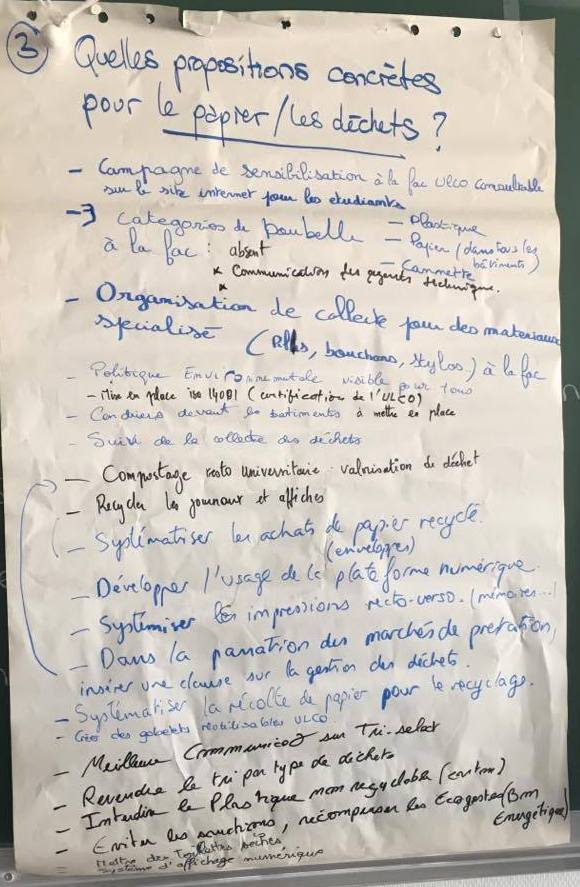 3
Quelles propositions concrètes
pour le papier / les déchets ?
- Campagne de sensibilisation à la fac ULCO consultable
sur le site internet pour les étudiants
- 3 catégories de poubelle - Plastique
à la fac : absent - Papier (dans tous les bâtiments)
- Cannette
* Communication des agents technique.
*
- Organisation de collecte pour des materiaux
spécialisé (Piles, bouchons, stylos.) à la fac
- Politique Environnementale visible pour tous
- Mise en place iso 14001 (certification de l'ULCO)
- Cendriers devant les batiments à mettre en place
- Suivi de la collecte des déchets
- Compostage resto universitaire . valorisation du déchet
- Recycler les journaux et affiches
- Systématiser les achats de papier recyclé.
(enveloppes)
- Développer l'usage de la plate forme numérique.
- Systémiser les impressions recto-verso. (mémoires...)
- Dans la passation des marchés de prestation,
insérer une clause sur la gestion des déchets.
- Systématiser la récolte de papier pour le recyclage.
- Créer des gobelets réutilisables ULCO
- Meilleure Communicat° sur Tri-select
- Revendre le tri par type de déchets
- Interdire le Plastique non recyclable (carton)
- Eviter les sanctions, récompenser les Ecogestes (Bm
Energétique)
- Mettre des Toilettes sèches
- Système d'affichage numérique